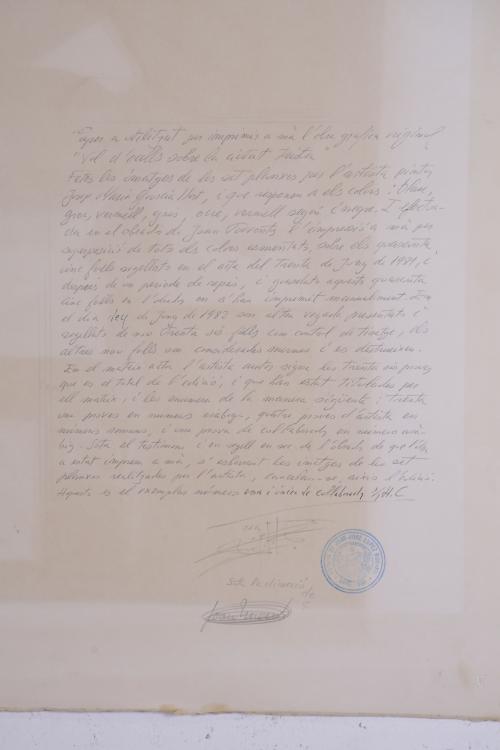 Paper a utilitzat per imprimir a mà l'obra gráfica original
"Vol d'ulls sobre la ciutat
Fetes les imatges de les set planxes per l'artista pintor
Josep Maria i que responen a els colors: Blau,
groc, vermell, gris, ocre, vermell segon i negre. I efectua-
da en el obrador de Joan l'impresió a mà per
superposició de tots els colors esmentats, sobre els quaranta
cinc fulls segellats en el acta del trenta de Juny de 1981, i
despres de un periode de repós, i guardats aquests quaranta
cinc fulls en l'obrador en s'han imprimit manualment. En
el dia de Juny de 1982 son altra vegada presentats i
segellats de nou trenta sis fulls com control de tiratge, els
altres nou fulls son considerats i es destrueixen.
En el mateix acta l'artista autor signa les trenta sis proves
que es el total de l'edició, i que han estat titulades per
ell mateix, i les enumera de la manera següent: trenta
una proves en numeros arabigs, quatre proves d'artista en
numeros romans, i una prova de col·laborador en numero arà-
big. Sota el testimoni i en segell en sec de l'obrador de que l'obra
a estat impresa a mà, s'esborren les imatges de les set
planxes realitzades per l'artista, aixis l'edició.
Aquesta es el exemplar número una i única de col·laborador 1/1 H.C
sota la direcció
de